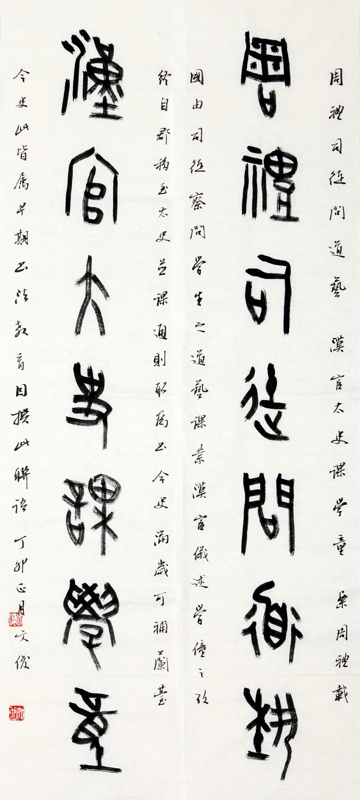 周禮司徒問道藝 漢官太史課學童 案周禮載
周禮司徒問道藝
國由司徒察問學生之道藝課業漢官儀述學僮之
自郡移至太史並課通則取為書令史滿歲可補蘭臺
漢官大史課學童
令史此皆屬早期書法教育因撰此聯語 丁卯正月 文俊